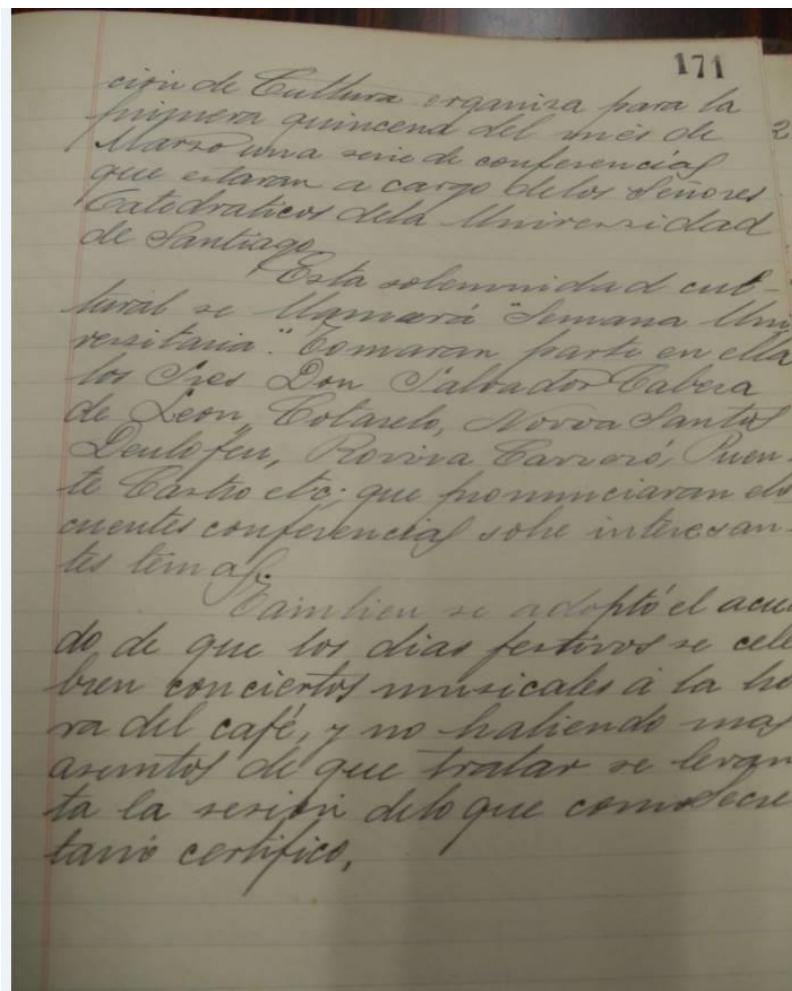 171
2
ción de Cultura organiza para la
primera quincena del mes de
Marzo una serie de conferencias
que estaran a cargo delos Señores
Catedraticos dela Universidad
de Santiago
Esta solemnidad cul-
tural se llamará "Semana Uni
versitaria." Tomaran parte en ella
los Sres Don Salvador Cabeza
de Leon, Cotarelo, Novoa Santos
Deulofeu, Rovira Carreró, Puen-
te Castro etc; que pronunciaran elo
cuentes conferencias sobre interesan-
tes temas.
Tambien se adoptó el acue
do de que los dias festivos se cele
bren conciertos musicales á la ho
ra del café, y no habiendo mas
asuntos de que tratar se levan
ta la sesión delo que como Secre
tario certifico,